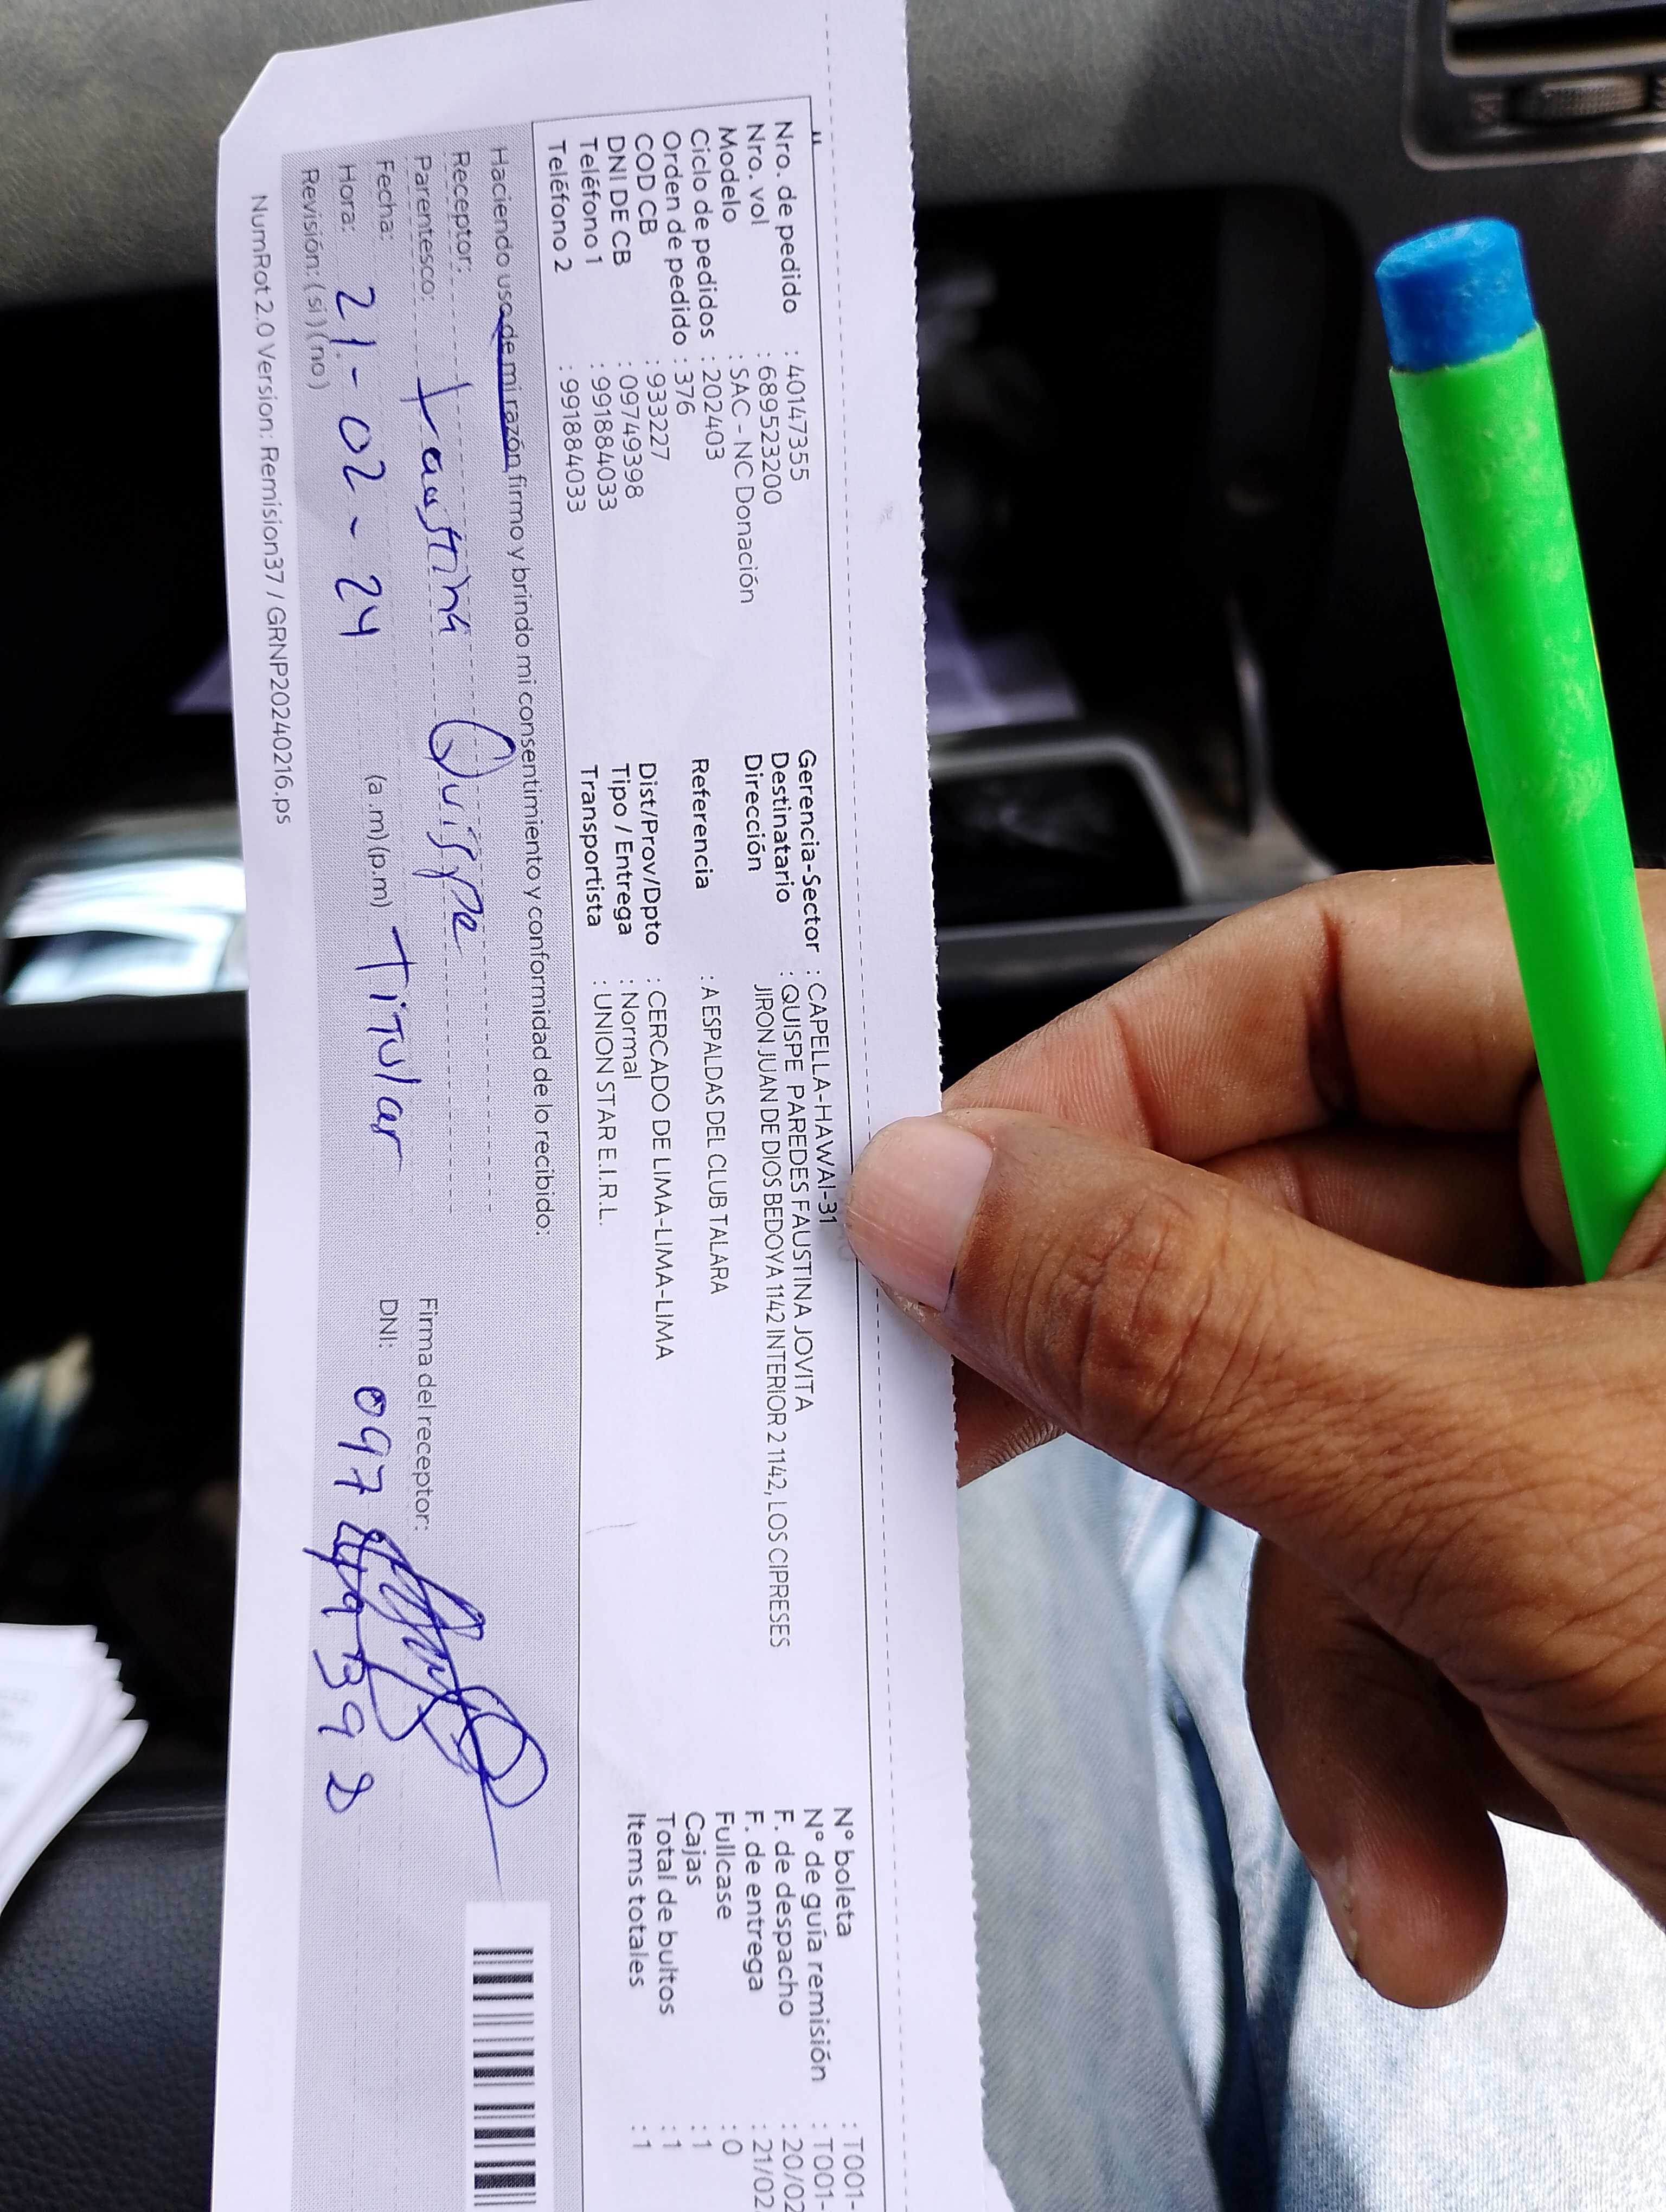 Nro. de pedido : 40147355
Nro. vol : 689523200
Modelo : SAC - NC Donación
Ciclo de pedidos : 202403
Orden de pedido : 376
COD CB : 933227
DNI DE CB : 09749398
Teléfono 1 : 991884033
Teléfono 2 : 991884033
Gerencia-Sector : CAPELLA-HAWAI-31
Destinatario : QUISPE PAREDES FAUSTINA JOVITA
Dirección JIRON JUAN DE DIOS BEDOYA 1142 INTERIOR 2 1142, LOS CIPRESES
Referencia : A ESPALDAS DEL CLUB TALARA
Dist/Prov/Dpto : CERCADO DE LIMA-LIMA-LIMA
Tipo / Entrega : Normal
Transportista : UNION STAR E.I.R.L.
N° boleta : T001-
N° de guía remisión : T001-
F. de despacho : 20/02
F. de entrega : 21/02
Fullcase : 0
Cajas : 1
Total de bultos : 1
Items totales : 1
Haciendo uso de mi razón firmo y brindo mi consentimiento y conformidad de lo recibido:
Receptor:
Parentesco: Faustina Quispe
Firma del receptor:
Fecha: Titular
DNI: 09749398
Hora: 21-02-24 (a.m)(p.m)
Revisión: (si)(no)
NumRot 2.0 Version: Remision37 / GRNP20240216.ps